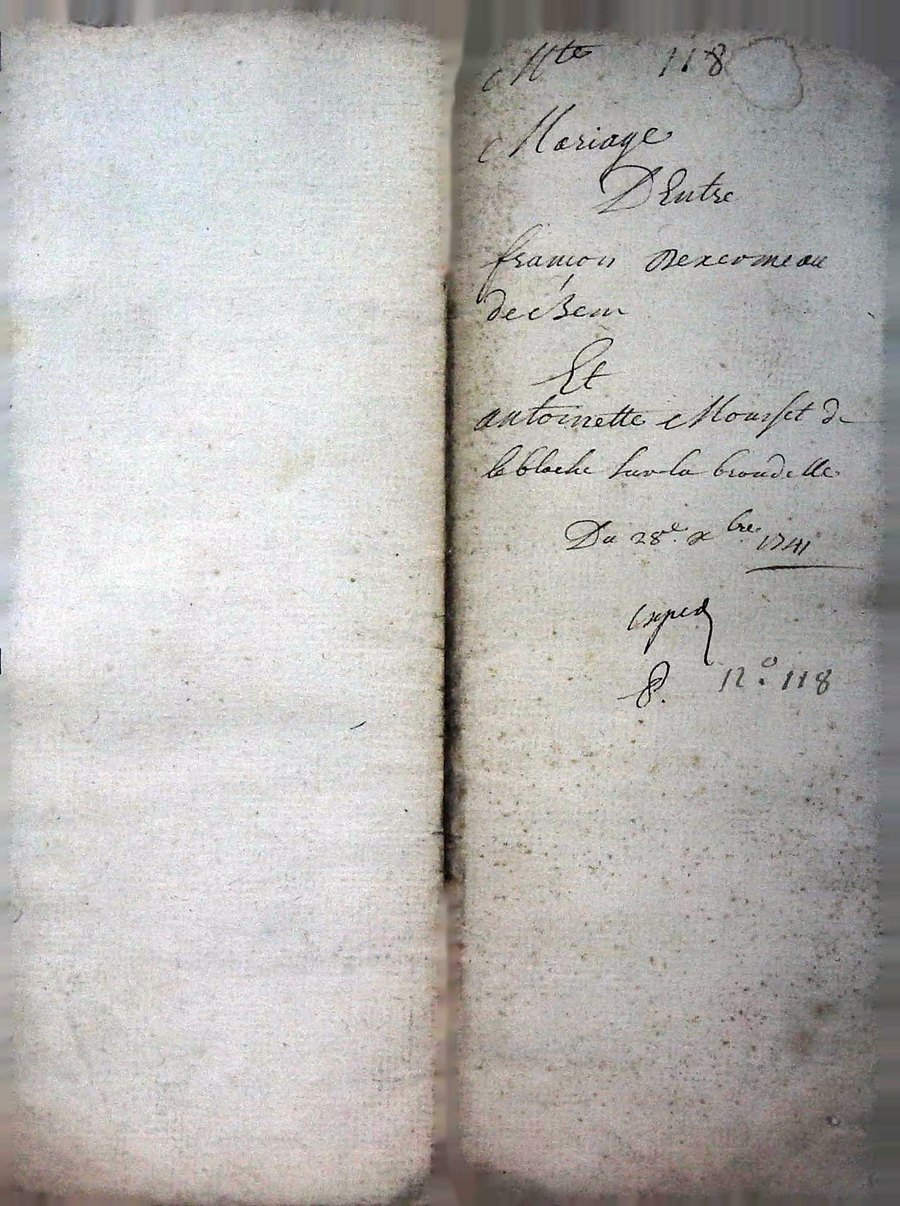 Mte 118
Mariage
D'Entre
françois
de
Et
antoinette Mousset de
la bloche sur la broudelle
Du 28e xbre 1741
Exped
8. N.º 118